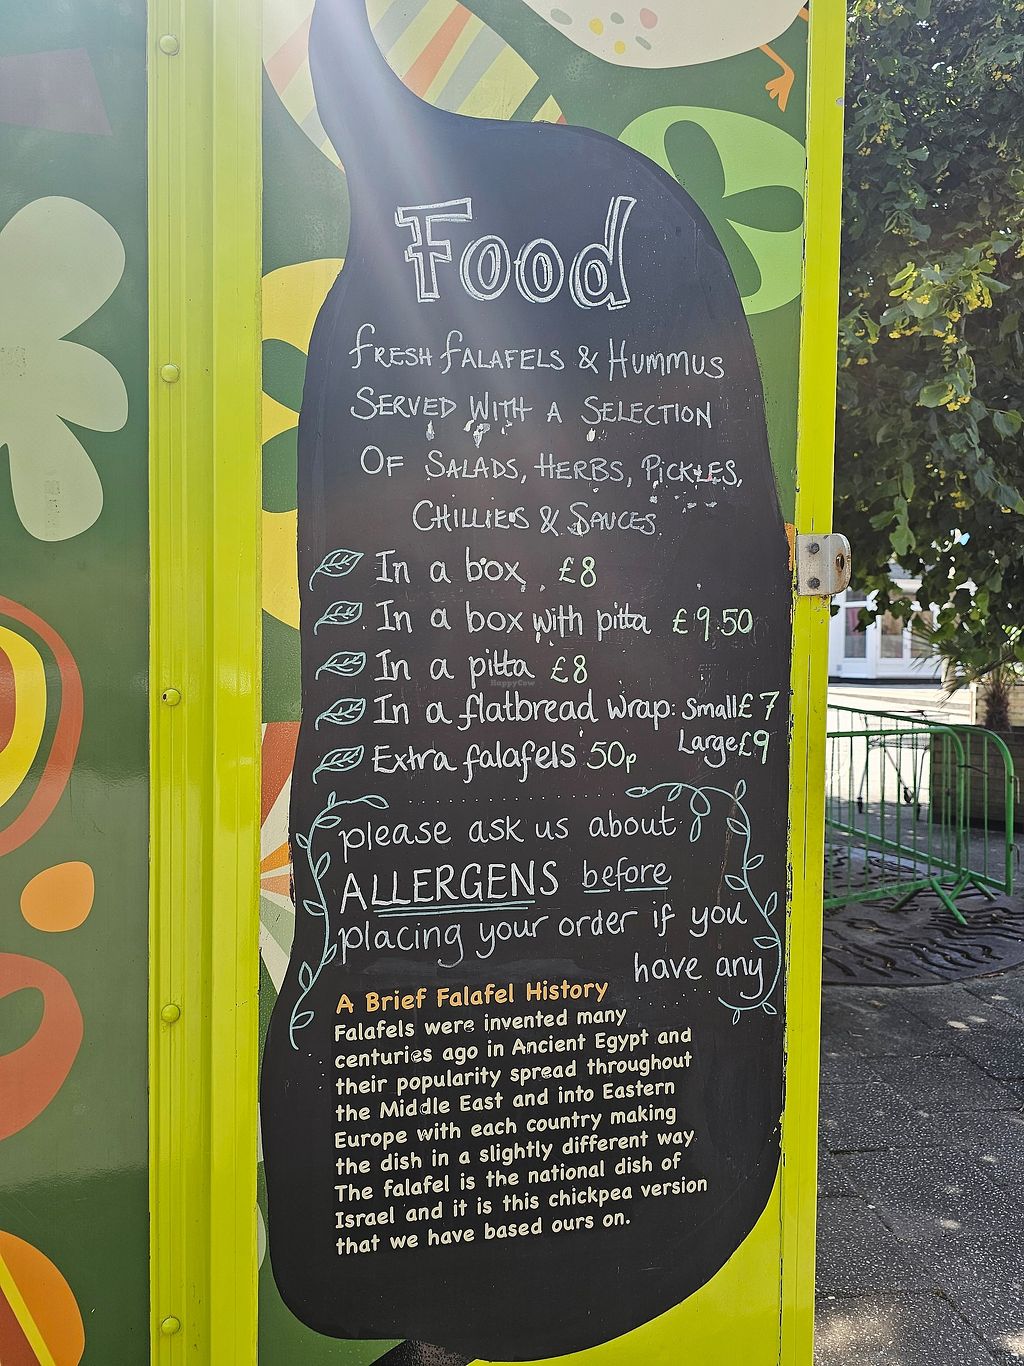 Food
FRESH FALAFELS & HUMMUS
SERVED WITH A SELECTION
OF SALADS, HERBS, PICKLES,
CHILLIES & SAUCES.
In a box £8
In a box with pitta £9.50
In a pitta £8
HappyCow
In a flatbread wrap: Small £7
Large £9
Extra falafels 50p
please ask us about
ALLERGENS before
placing your order if you
have any
A Brief Falafel History
Falafels were invented many
centuries ago in Ancient Egypt and
their popularity spread throughout
the Middle East and into Eastern
Europe with each country making
the dish in a slightly different way
The falafel is the national dish of
Israel and it is this chickpea version
that we have based ours on.